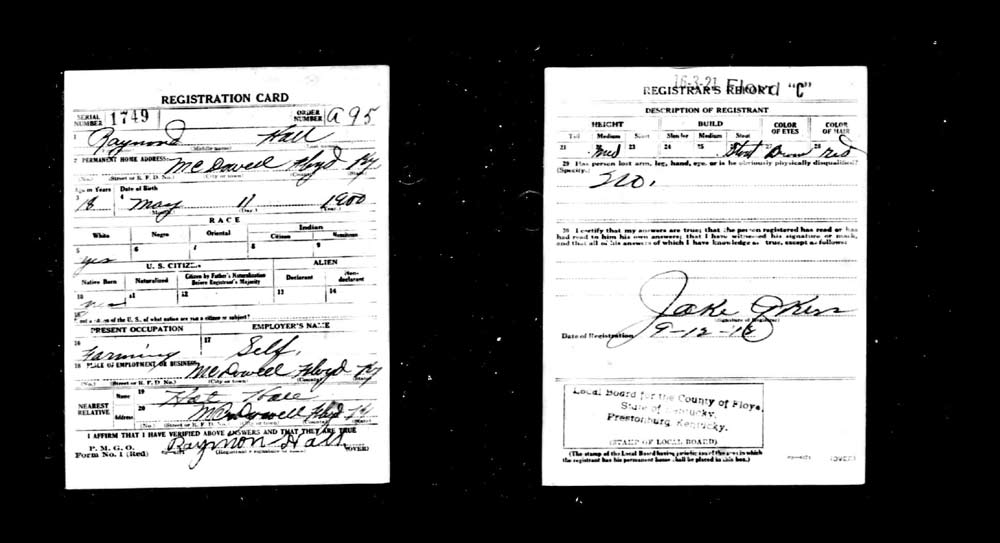 REGISTRATION CARD
SERIAL NUMBER 1749 ORDER NUMBER A 95
1 Raymond Hall
(Middle name)
2 PERMANENT HOME ADDRESS: McDowell Floyd Ky
(No.) (Street or R. F. D. No.) (City or town) (County) (State)
Age in Years Date of Birth
3 18 4 May 11 1900
(Month.) (Day.)
RACE
White Negro Oriental Indian
Citizen Noncitizen
5 6 7 8 9
yes
U. S. CITIZEN ALIEN
Native Born Naturalized Citizen by Father's Naturalization Before Registrant's Majority Declarant Non-declarant
10 11 12 13 14
yes
15 If not a citizen of the U. S., of what nation are you a citizen or subject?
PRESENT OCCUPATION EMPLOYER'S NAME
16 Farming 17 Self.
18 PLACE OF EMPLOYMENT OR BUSINESS: McDowell Floyd Ky
(No.) (Street or R. F. D. No.) (City or town) (County) (State)
NEAREST RELATIVE Name 19 Hall
Address 20 McDowell Floyd Ky
(No.) (Street or R. F. D. No.) (City or town) (County) (State)
I AFFIRM THAT I HAVE VERIFIED ABOVE ANSWERS AND THAT THEY ARE TRUE
P. M. G. O.
Form No. 1 (Red) Raymon Hall (OVER)
16-3-21 Floyd "C"
REGISTRAR'S REPORT
DESCRIPTION OF REGISTRANT
HEIGHT BUILD COLOR OF EYES COLOR OF HAIR
Tall Medium Short Slender Medium Stout
21 22 23 24 25 26 27 28
Med Stout Brown red
29 Has person lost arm, leg, hand, eye, or is he obviously physically disqualified?
(Specify.)
No.
30 I certify that my answers are true; that the person registered has read or has
had read to him his own answers; that I have witnessed his signature or mark,
and that all of his answers of which I have knowledge are true, except as follows:
Jake
(Signature of Registrar)
Date of Registration 9-12-18
Local Board for the County of Floyd,
State of Kentucky,
Prestonburg, Kentucky.
(STAMP OF LOCAL BOARD)
(The stamp of the Local Board having jurisdiction of the area in which
the registrant has his permanent home shall be placed in this box.)
(OVER)